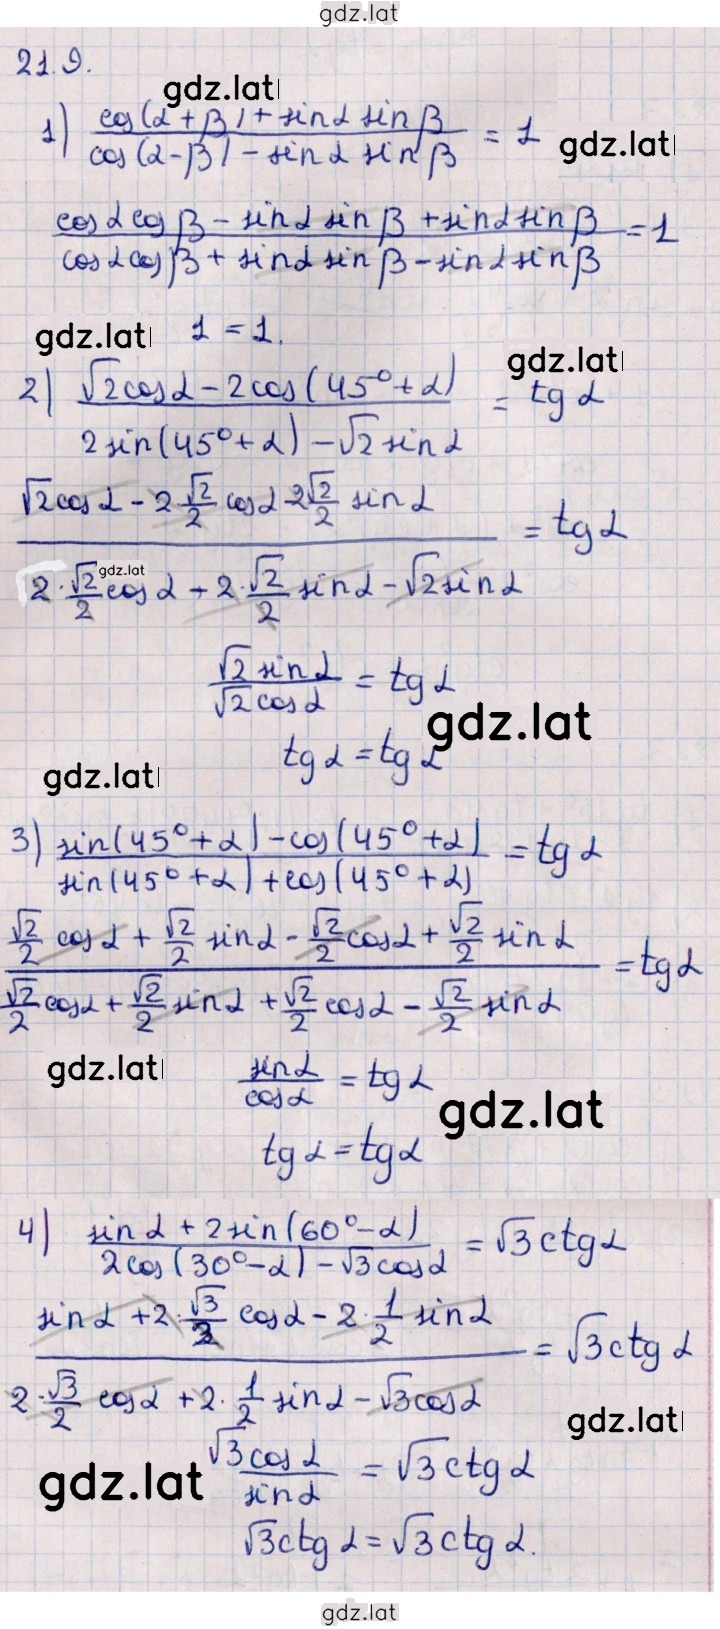 gdz.lat
21.9.
gdz.lat
1) (cos(α+β)+sinα sinβ)/(cos(α-β)-sinα sinβ) = 1
gdz.lat
(cosα cosβ - sinα sinβ + sinα sinβ)/(cosα cosβ + sinα sinβ - sinα sinβ) = 1
gdz.lat 1 = 1.
gdz.lat
2) (√2cosα - 2cos(45°+α))/(2sin(45°+α) - √2 sinα) = tgα
(√2cosα - 2 √2/2 cosα 2√2/2 sinα)/(2·√2/2 cosα + 2·√2/2 sinα - √2sinα) = tgα
gdz.lat
√2 sinα/√2 cosα = tgα
gdz.lat
tgα = tgα
gdz.lat
3) (sin(45°+α) - cos(45°+α))/(sin(45°+α) + cos(45°+α)) = tgα
(√2/2 cosα + √2/2 sinα - √2/2 cosα + √2/2 sinα)/(√2/2 cosα + √2/2 sinα + √2/2 cosα - √2/2 sinα) = tgα
gdz.lat sinα/cosα = tgα
gdz.lat
tgα = tgα
4) (sinα + 2sin(60°-α))/(2cos(30°-α) - √3cosα) = √3ctgα
(sinα + 2·√3/2 cosα - 2·1/2 sinα)/(2·√3/2 cosα + 2·1/2 sinα - √3cosα) = √3ctgα
gdz.lat
√3cosα/sinα = √3ctgα
gdz.lat
√3ctgα = √3ctgα.
gdz.lat